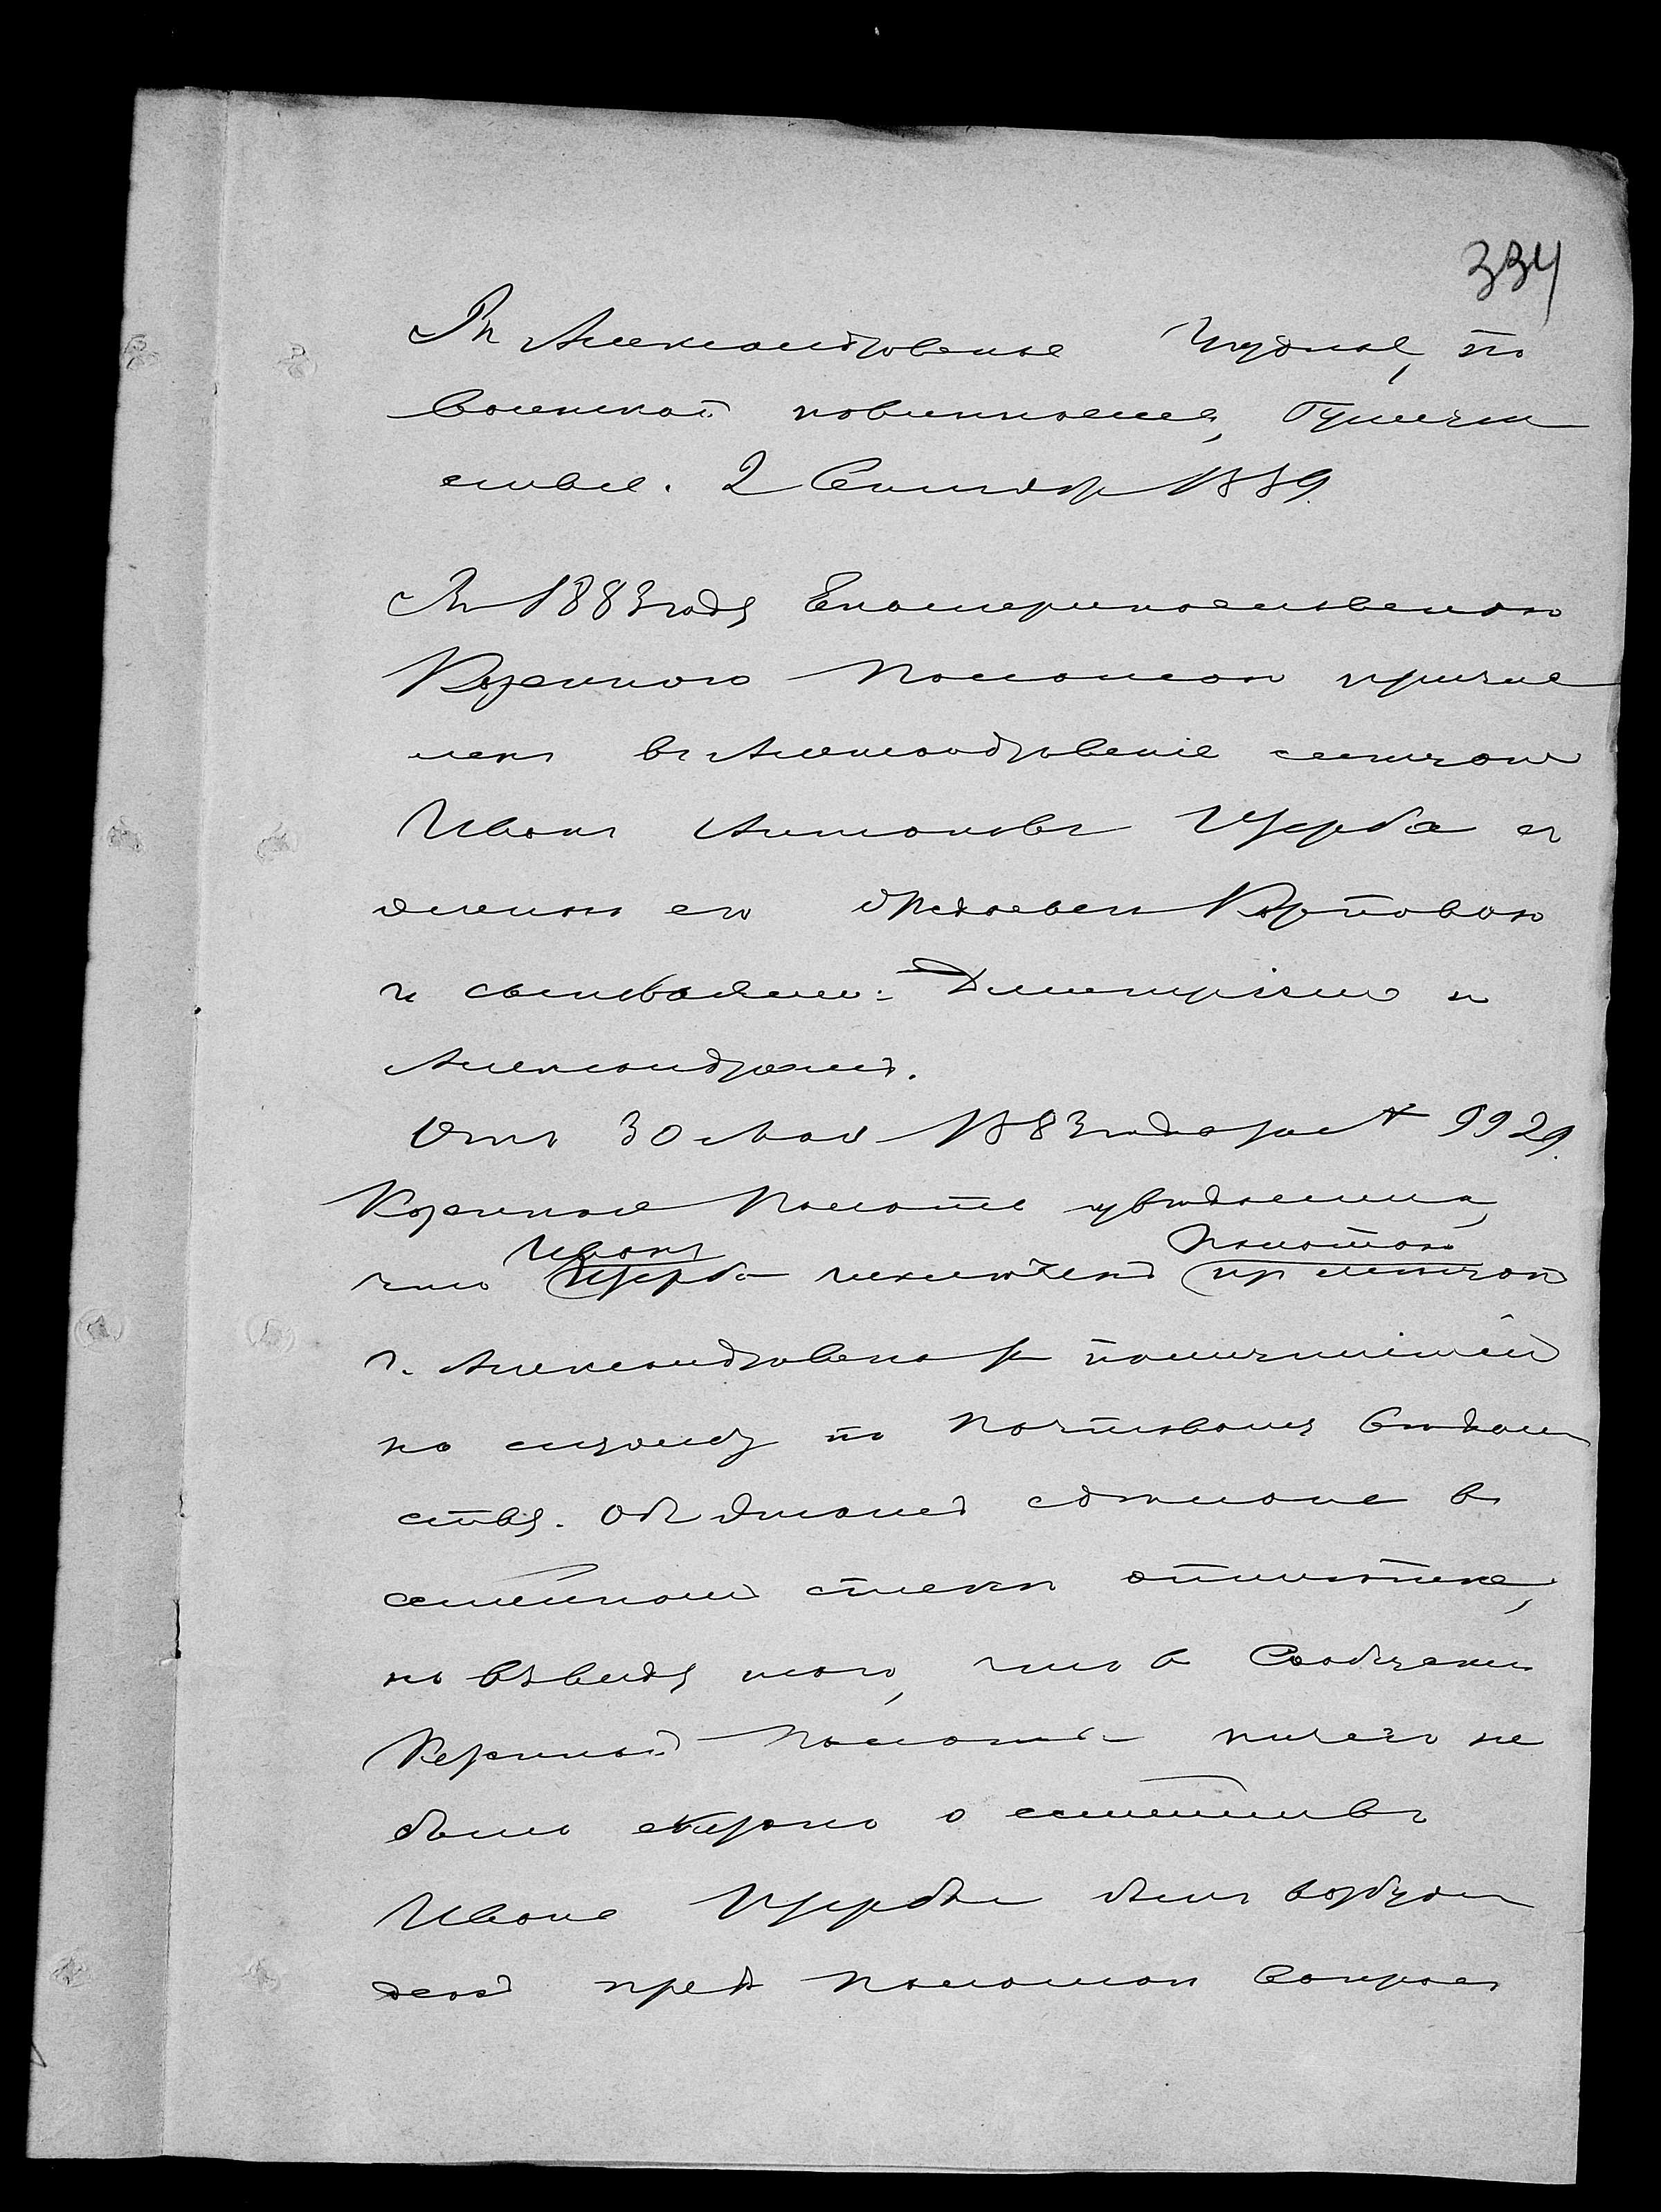 334
Въ Александровское Уездное, по
воинской повинности, Присут
ствіе. 2 Сентября 1889.
Въ 1883 году Екатеринославскою
Казенною Палатою причис
ленъ въ Александровскіе мещане
Иванъ Антоновъ Щерба съ
женою его
и сыновьями: Дмитріемъ и
Александромъ.
Отъ 30 Мая 1883 года за № 9929.
Казенная Палата уведомила,
Иванъ Палатою
что Щерба исключенъ из мещанъ
г. Александровска за поступленіемъ
на службу по Почтовому Ведом
ству. Объ этомъ сделана въ
семейномъ списке отметка,
но въ виду того, что въ сообщеніи
Казенной Палаты ничего не
было сказано о семействе
Ивана Щербы былъ возбуж
денъ предъ Палатою вопросъ